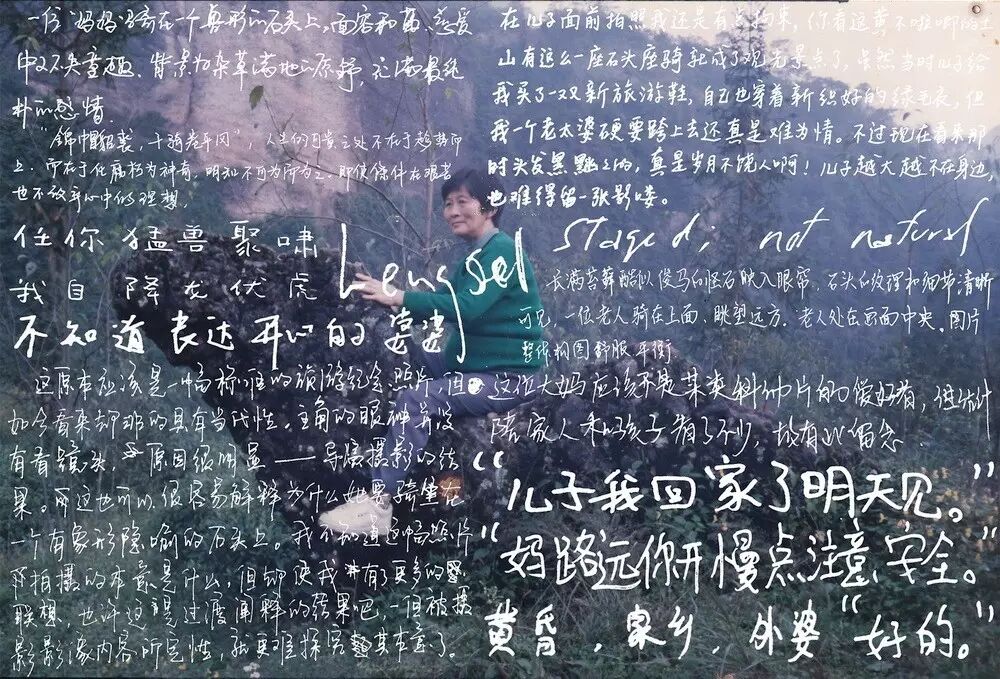 一位妈妈骑在一个兽形的石头上，面容和蔼、慈爱
中又不失童趣。背景为杂草满地的原野，充满最纯
朴的感情。
"锦帽貂裘，千骑卷平冈"，人生的可贵之处不在于趋势而
上，而在于化腐朽为神奇，明知不可为而为之，即使条件在艰苦
也不放弃心中的理想。
任你猛兽聚啸
我自降龙伏虎
不知道表达开心的婆婆
Lengsel
这原本应该是一幅标准的旅游纪念照片，但
如今看来却非的具有当代性。主角的眼神并没
有看镜头，原因很明显——导演摄影的结
果。而这也可以很容易解释为什么她要骑坐在
一个有象形隐喻的石头上。我不知道这幅照片
所拍摄的本意是什么，但却使我有了更多的
联想，也许这是过渡阐释的结果吧，一但被摄
影影像内容所定性，就更难探究其本意了。
在儿子面前拍照我还是有点拘束，你看这黄不啦唧的土
山有这么一座石头座骑就成了观光景点了，虽然当时儿子给
我买了一双新旅游鞋，自己也穿着新织好的绿毛衣，但
我一个老太婆硬要跨上去还真是难为情。不过现在看来那
时头发黑黝之的，真是岁月不饶人啊！儿子越大越不在身边，
也难得留一张影喽。
Staged, not natural
长满苔藓酷似骏马的怪石映入眼帘，石头的纹理和细节清晰
可见，一位老人骑在上面，眺望远方。老人处在画面中央。图片
整体构图舒服平衡
这位大妈应该不是某类科幻片的爱好者，但估计
陪家人和孩子看了不少，故有此留念
"儿子我回家了明天见。"
"妈路远你开慢点注意安全。
黄昏，家乡，外婆"好的。"